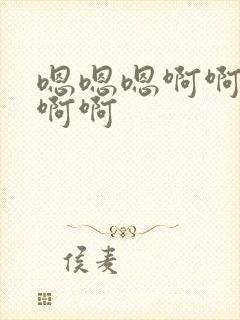 嗯嗯嗯啊啊
啊啊
侯麦